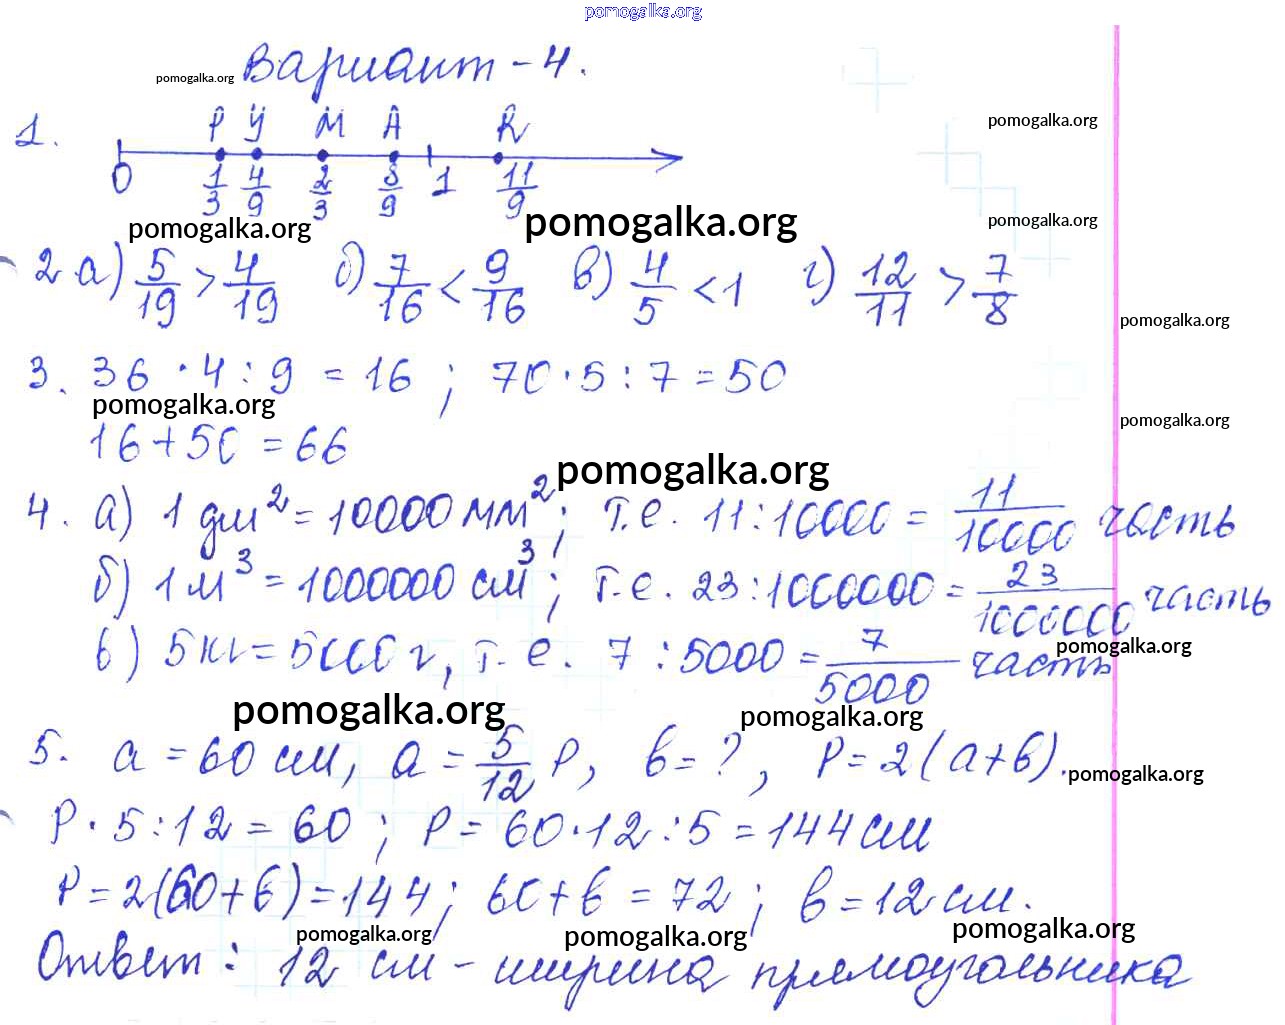 pomogalka.org
pomogalka.org Вариант - 4.
1. P У M A R pomogalka.org
0 1/3 4/9 2/3 8/9 1 11/9
pomogalka.org pomogalka.org pomogalka.org
2 а) 5/19 > 4/19 б) 7/16 < 9/16 в) 4/5 < 1 г) 12/11 > 7/8
pomogalka.org
3. 36 · 4 : 9 = 16 ; 70 · 5 : 7 = 50
pomogalka.org pomogalka.org
16 + 50 = 66
pomogalka.org
4. а) 1 дм² = 10000 мм² ; т.е. 11 : 10000 = 11/10000 часть
б) 1 м³ = 1000000 см³ ; т.е. 23 : 1000000 = 23/1000000 часть
в) 5 кг = 5000 г, т.е. 7 : 5000 = 7/5000 часть
pomogalka.org
pomogalka.org pomogalka.org
5. a = 60 см, a = 5/12 P, в = ? , P = 2 (a + в).
pomogalka.org
P · 5 : 12 = 60 ; P = 60 · 12 : 5 = 144 см
P = 2(60 + в) = 144 ; 60 + в = 72 ; в = 12 см.
pomogalka.org pomogalka.org pomogalka.org
Ответ : 12 см - ширина прямоугольника